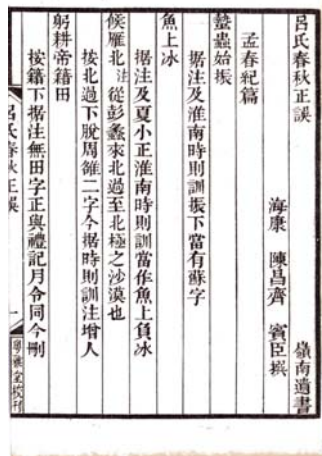 呂氏春秋正誤
嶺南遺書
海康 陳昌齊 賓臣撰
孟春紀篇
蟄蟲始振
据注及淮南時則訓振下當有蘇字
魚上冰
据注及夏小正淮南時則訓當作魚上負冰
候雁北注從彭蠡來北過至北極之沙漠也
按北過下脫周雒二字今据時則訓注增人
躬耕帝籍田
按籍下据注無田字正與禮記月令同今刪
呂氏春秋正誤
一
粤雅堂校刊